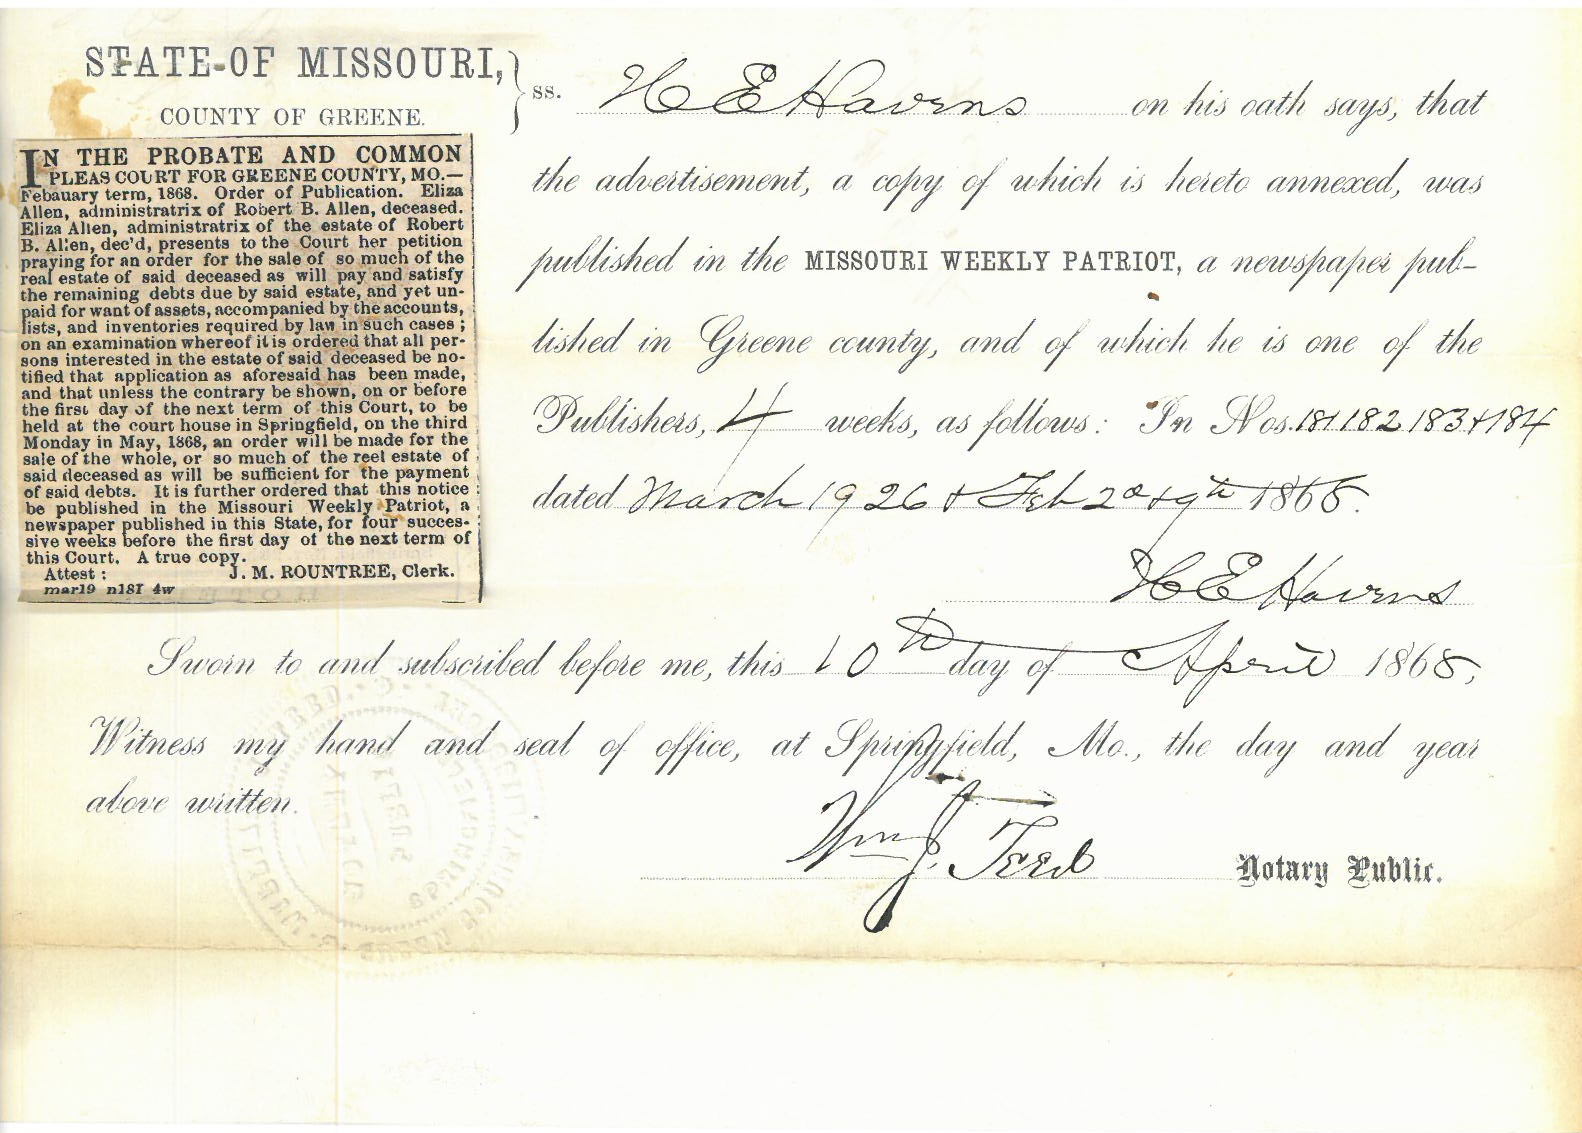 STATE OF MISSOURI,
COUNTY OF GREENE.
ss.
IN THE PROBATE AND COMMON
PLEAS COURT FOR GREENE COUNTY, MO.—
Febauary term, 1868. Order of Publication. Eliza
Allen, administratrix of Robert B. Allen, deceased.
Eliza Allen, administratrix of the estate of Robert
B. Allen, dec'd, presents to the Court her petition
praying for an order for the sale of so much of the
real estate of said deceased as will pay and satisfy
the remaining debts due by said estate, and yet un-
paid for want of assets, accompanied by the accounts,
lists, and inventories required by law in such cases;
on an examination whereof it is ordered that all per-
sons interested in the estate of said deceased be no-
tified that application as aforesaid has been made,
and that unless the contrary be shown, on or before
the first day of the next term of this Court, to be
held at the court house in Springfield, on the third
Monday in May, 1868, an order will be made for the
sale of the whole, or so much of the reel estate of
said deceased as will be sufficient for the payment
of said debts. It is further ordered that this notice
be published in the Missouri Weekly Patriot, a
newspaper published in this State, for four succes-
sive weeks before the first day of the next term of
this Court. A true copy.
Attest: J. M. ROUNTREE, Clerk.
mar19 n181 4w
H E Havens on his oath says, that
the advertisement, a copy of which is hereto annexed, was
published in the MISSOURI WEEKLY PATRIOT, a newspaper pub-
lished in Greene county, and of which he is one of the
Publishers, 4 weeks, as follows: In Nos. 181 182 183 + 184
dated March 19 26 + Feb 2d + 9th 1868.
H E Havens
Sworn to and subscribed before me, this 10th day of April 1868,
Witness my hand and seal of office, at Springfield, Mo., the day and year
above written.
Wm J. Teed Notary Public.